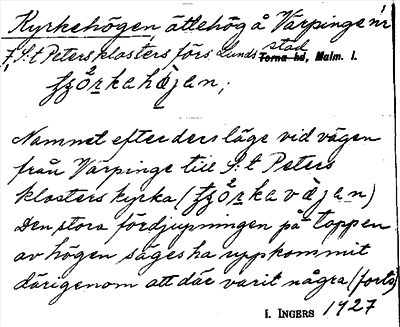 Kyrkehögen, ättehög å Värpinge nr
7, S:t Peters klosters förs. Lunds stad
Torna hd, Malm. l.
Namnet efter ders läge vid vägen
från Värpinge till S:t Peters
klosters kyrka
Den stora fördjupningen på toppen
av högen säges ha uppkommit
därigenom att där varit några (forts)
I. INGERS 1927